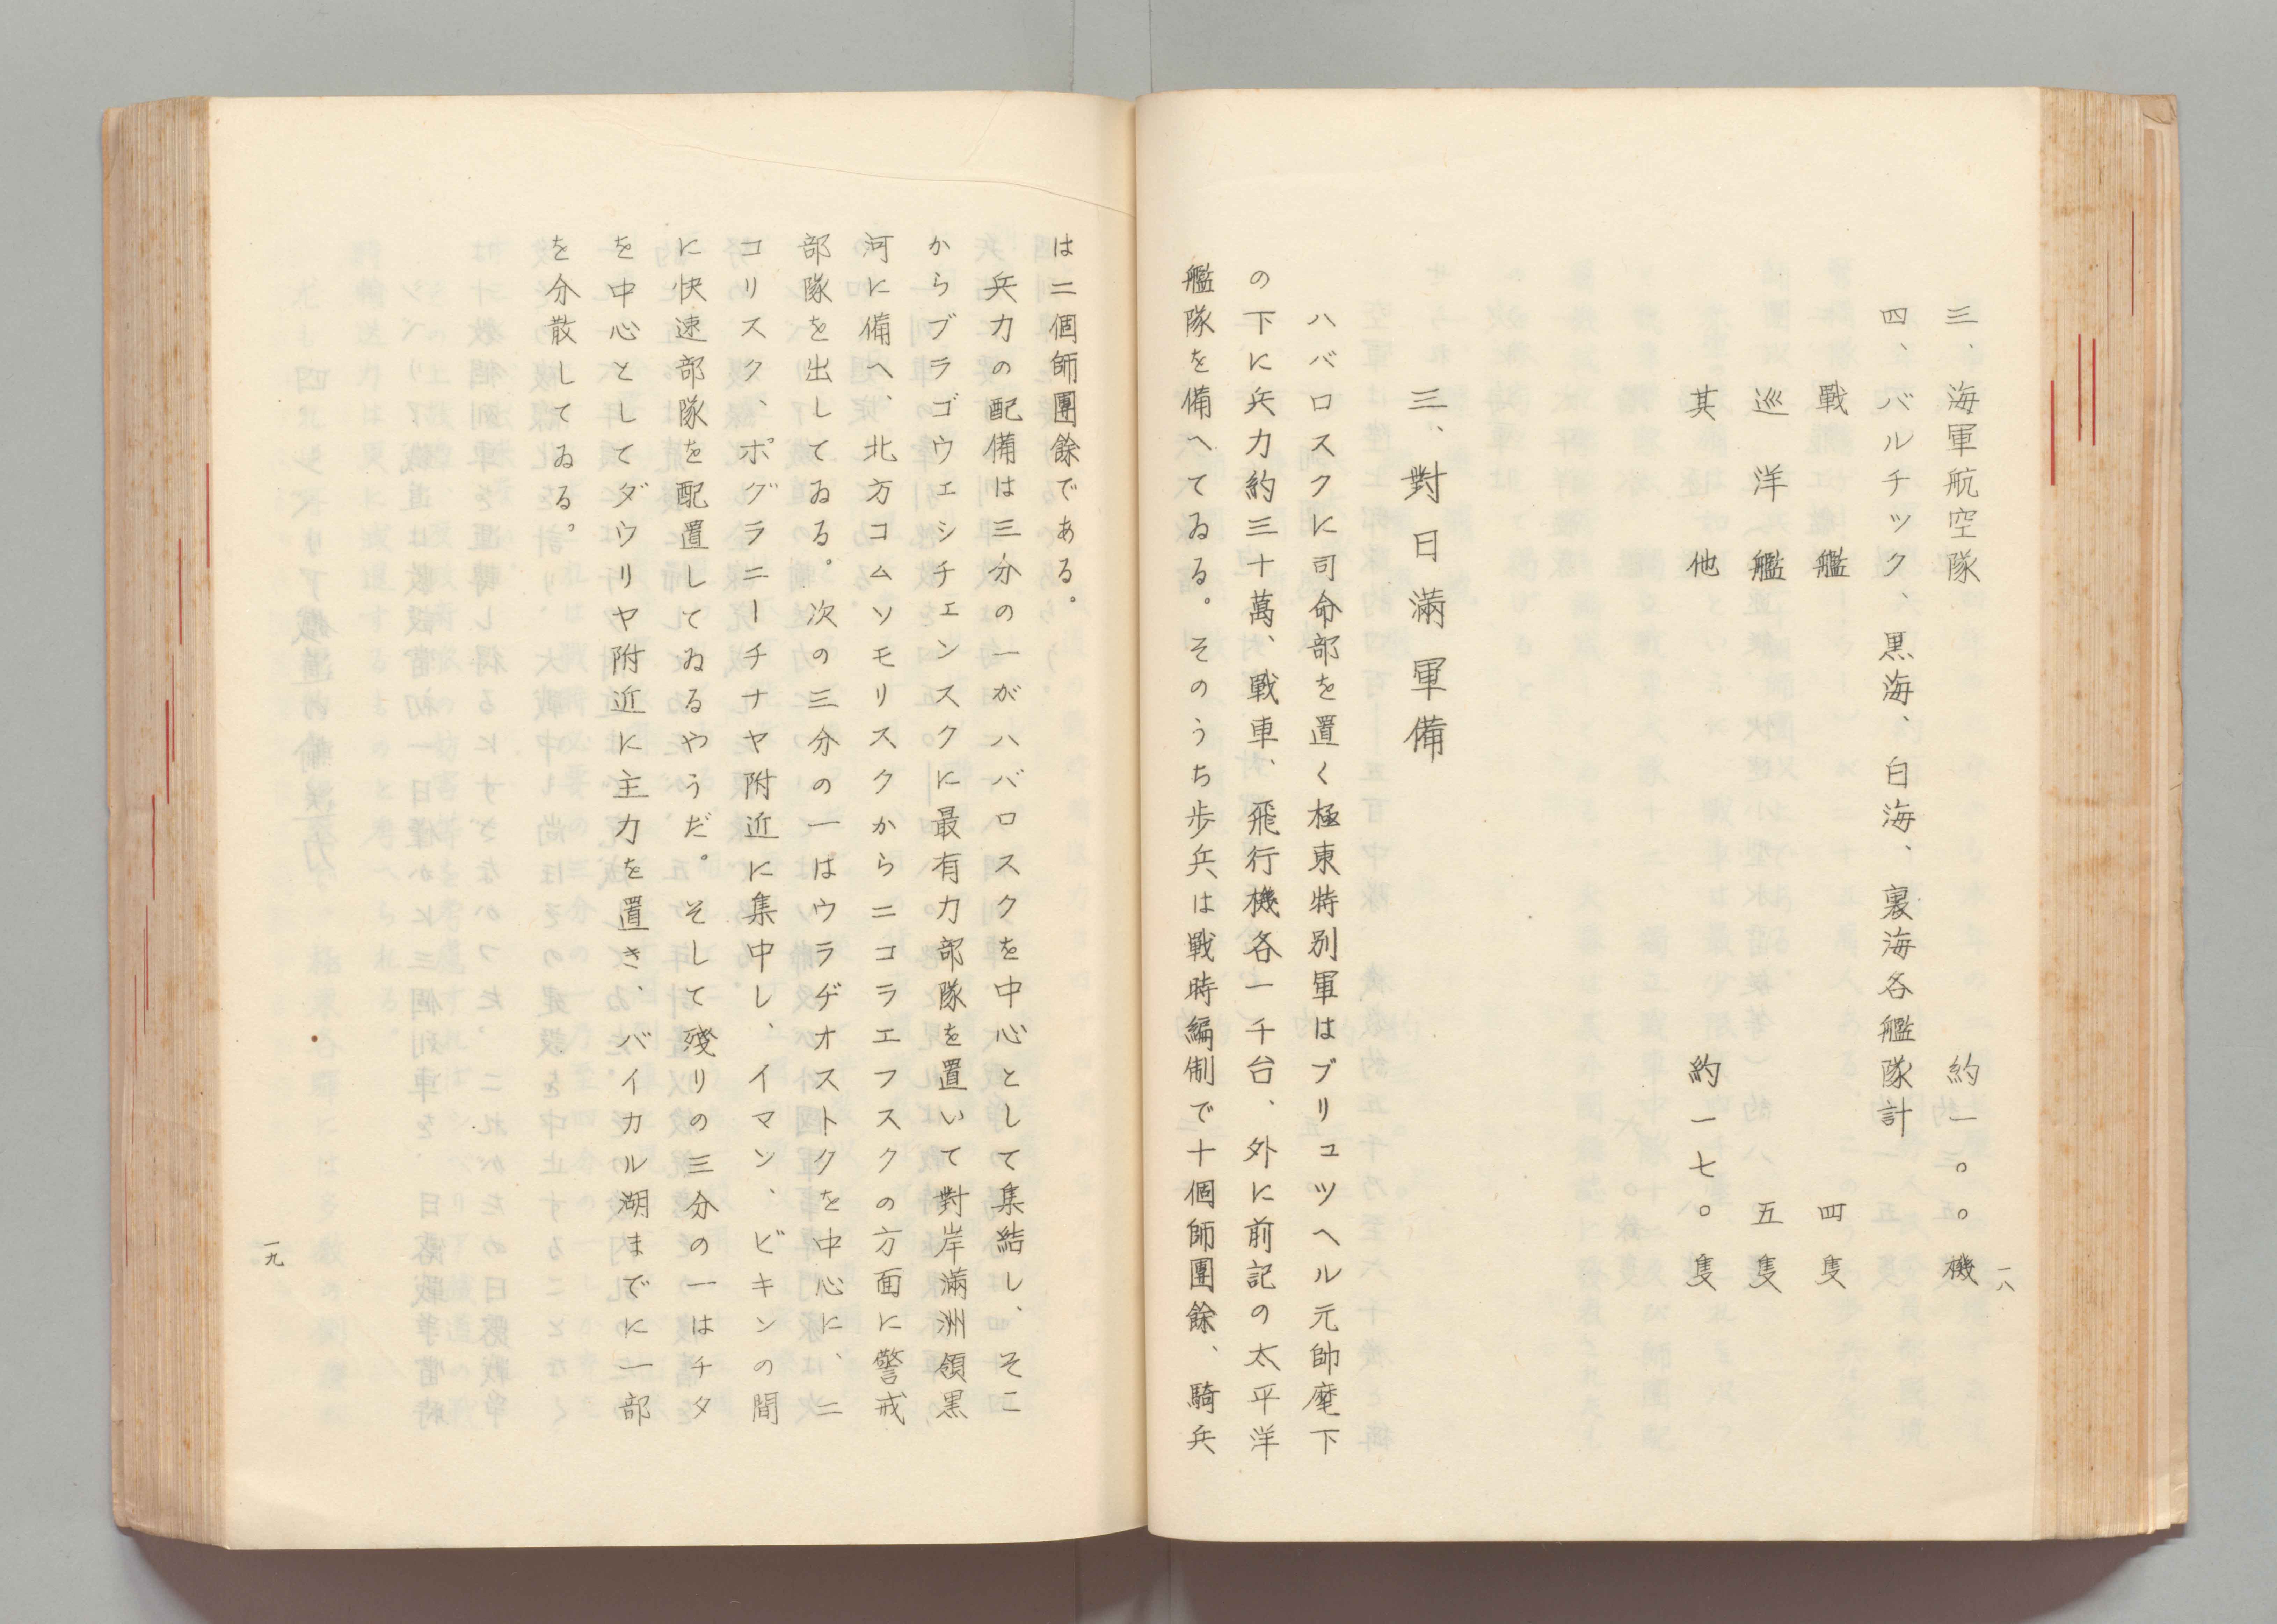 三、海軍航空隊　約一〇〇機
四、バルチック、黒海、白海、裏海各艦隊計
戰艦　四隻
巡洋艦　五隻
其他　約一七〇隻
三、對日滿軍備
ハバロスクに司命部を置く極東特別軍はブリュツヘル元帥麾下
の下に兵力約三十萬、戰車、飛行機各一千台、外に前記の太平洋
艦隊を備へてゐる。そのうち歩兵は戰時編制で十個師團餘、騎兵
一八
は二個師團餘である。
兵力の配備は三分の一がハバロスクを中心として集結し、そこ
からブラゴウェシチェンスクに最有力部隊を置いて對岸滿洲領黒
河に備へ、北方コムソモリスクからニコラエフスクの方面に警戒
部隊を出してゐる。次の三分の一はウラヂオストクを中心に、ニ
コリスク、ポグラニーチナヤ附近に集中し、イマン、ビキンの間
に快速部隊を配置してゐるやうだ。そして殘りの三分の一はチタ
を中心としてダウリヤ附近に主力を置き、バイカル湖までに一部
を分散してゐる。
一九